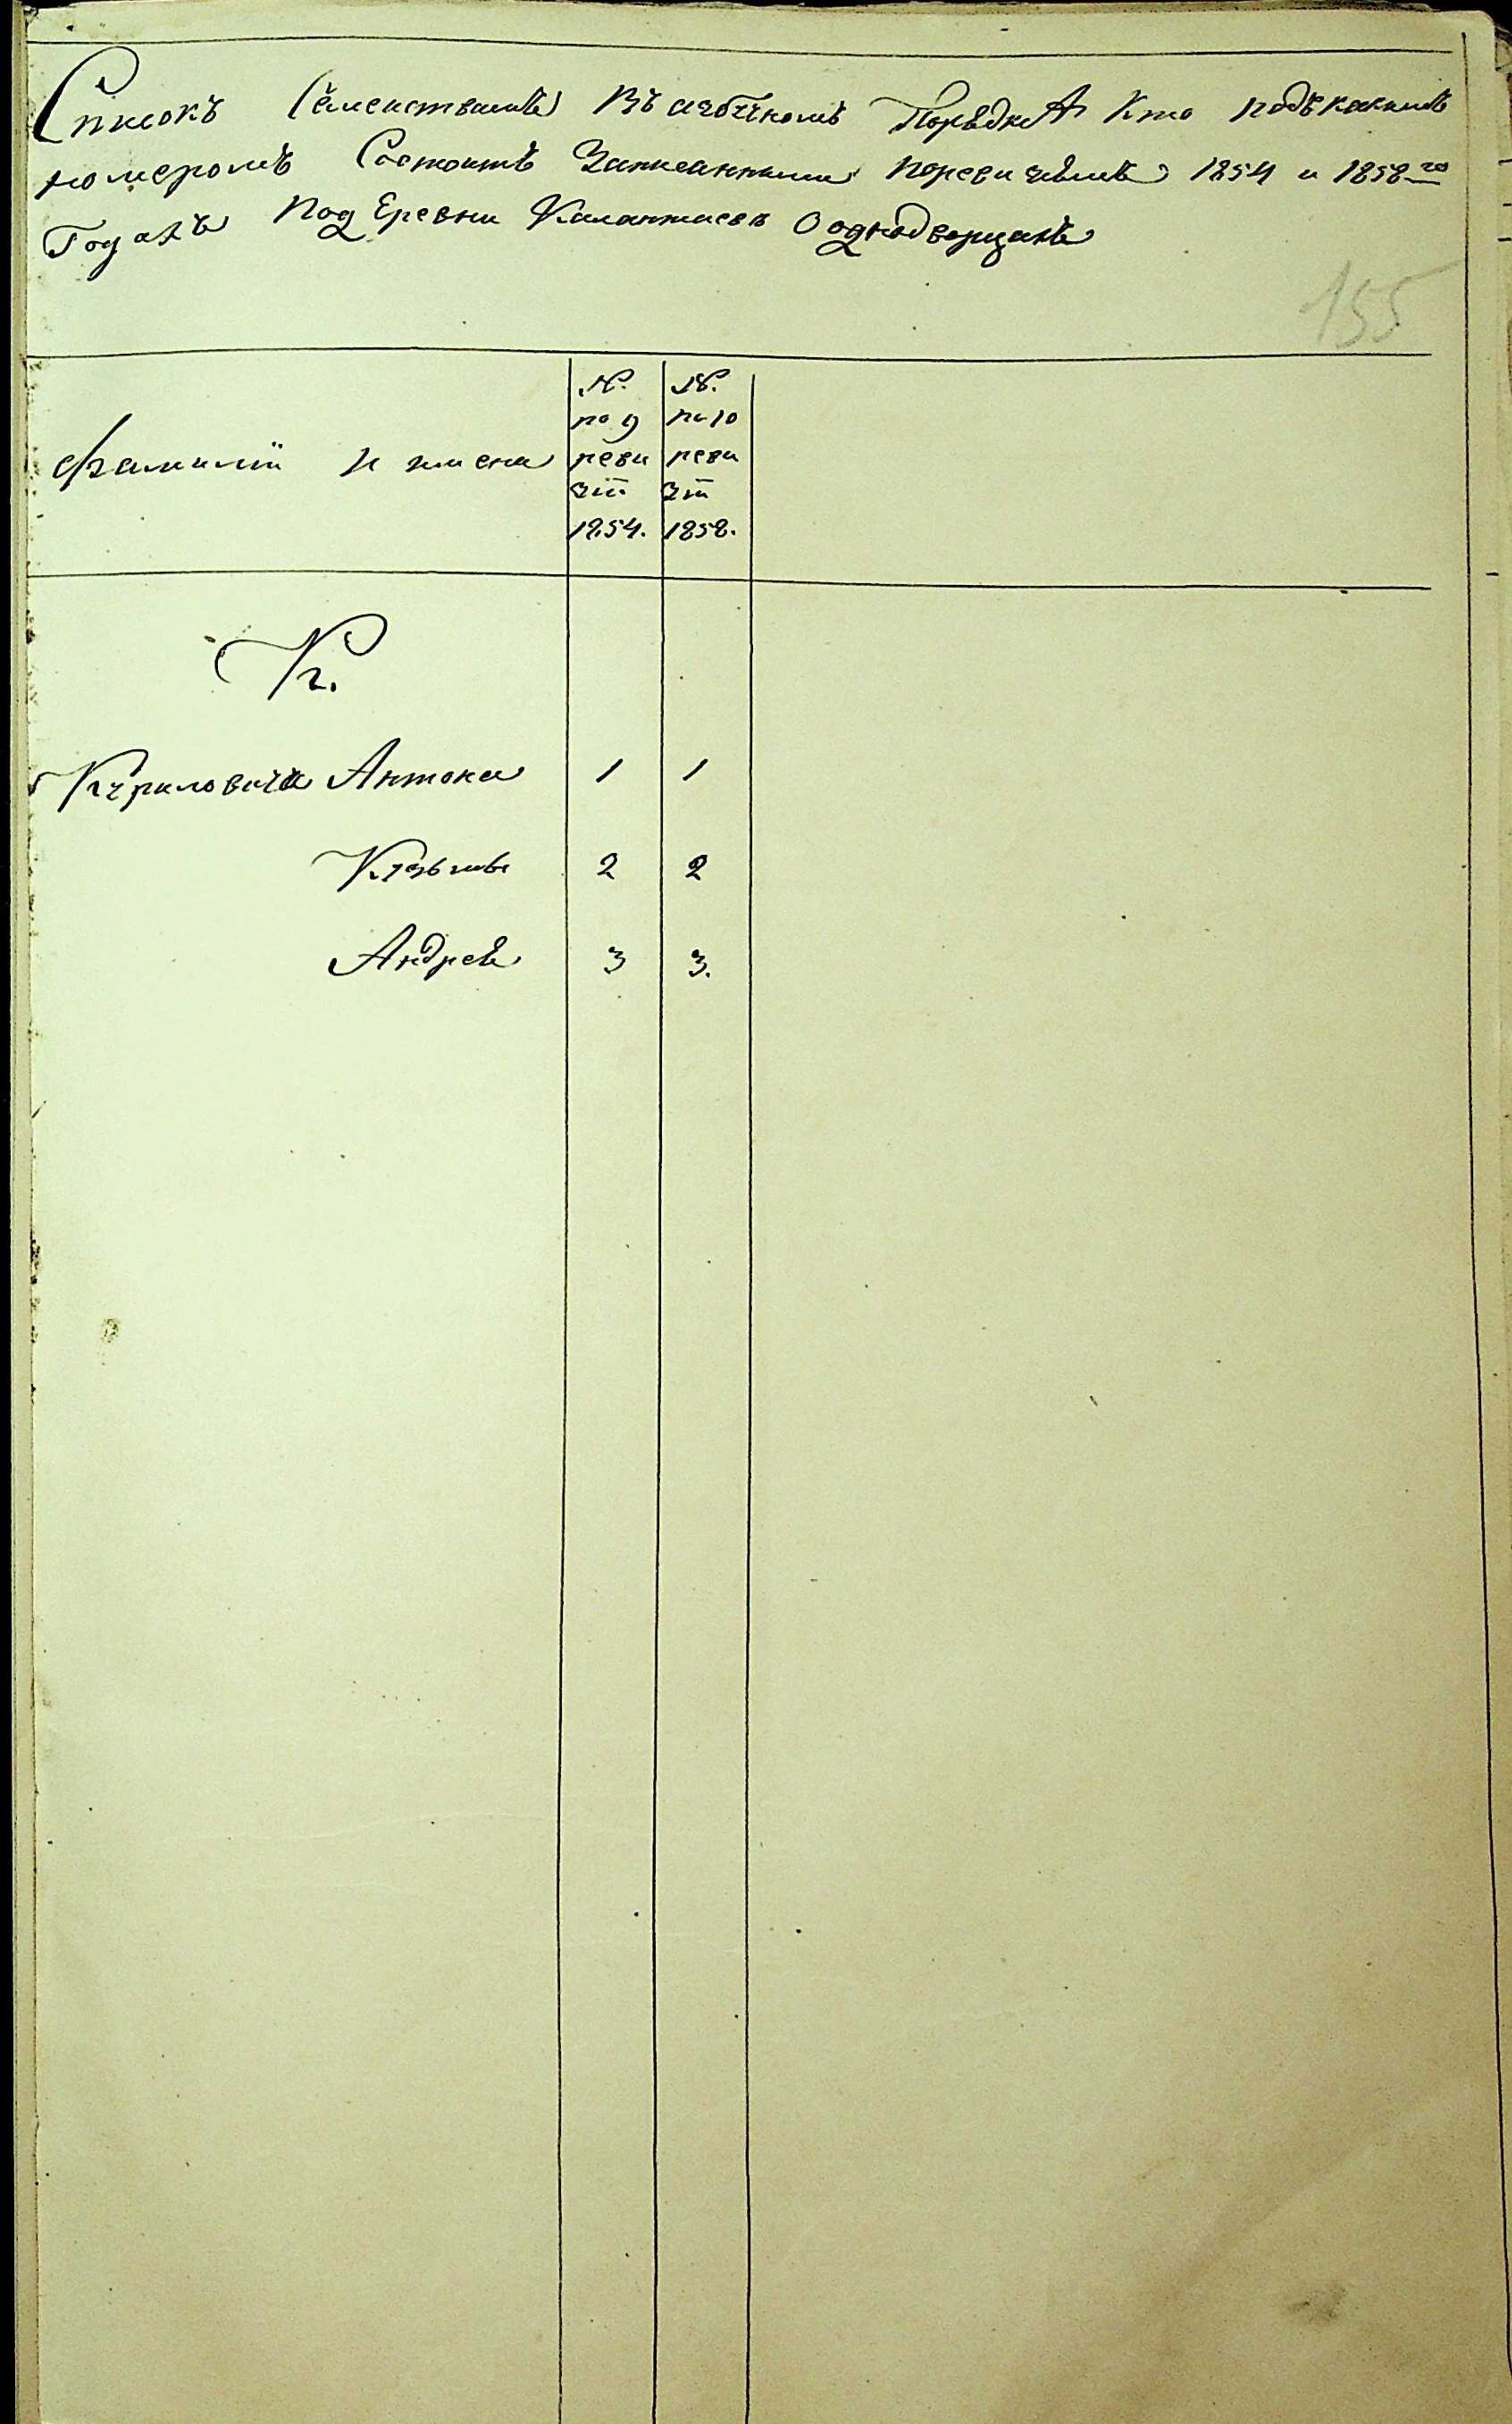 Списокъ Семействамъ Въ азбучномъ Порядкѣ Кто подъ какимъ
номеромъ Состоитъ Записаннымъ поревизіямъ 1854 и 1858го
Годахъ Под Еревни О однодворцахъ
155
Фамилїи и имена
№. по 9 реви зїи 1854.
№. по 10 реви зїи 1858.
К.
Куриловича Антона 1 1
Кузьмы 2 2
Андрея 3 3.